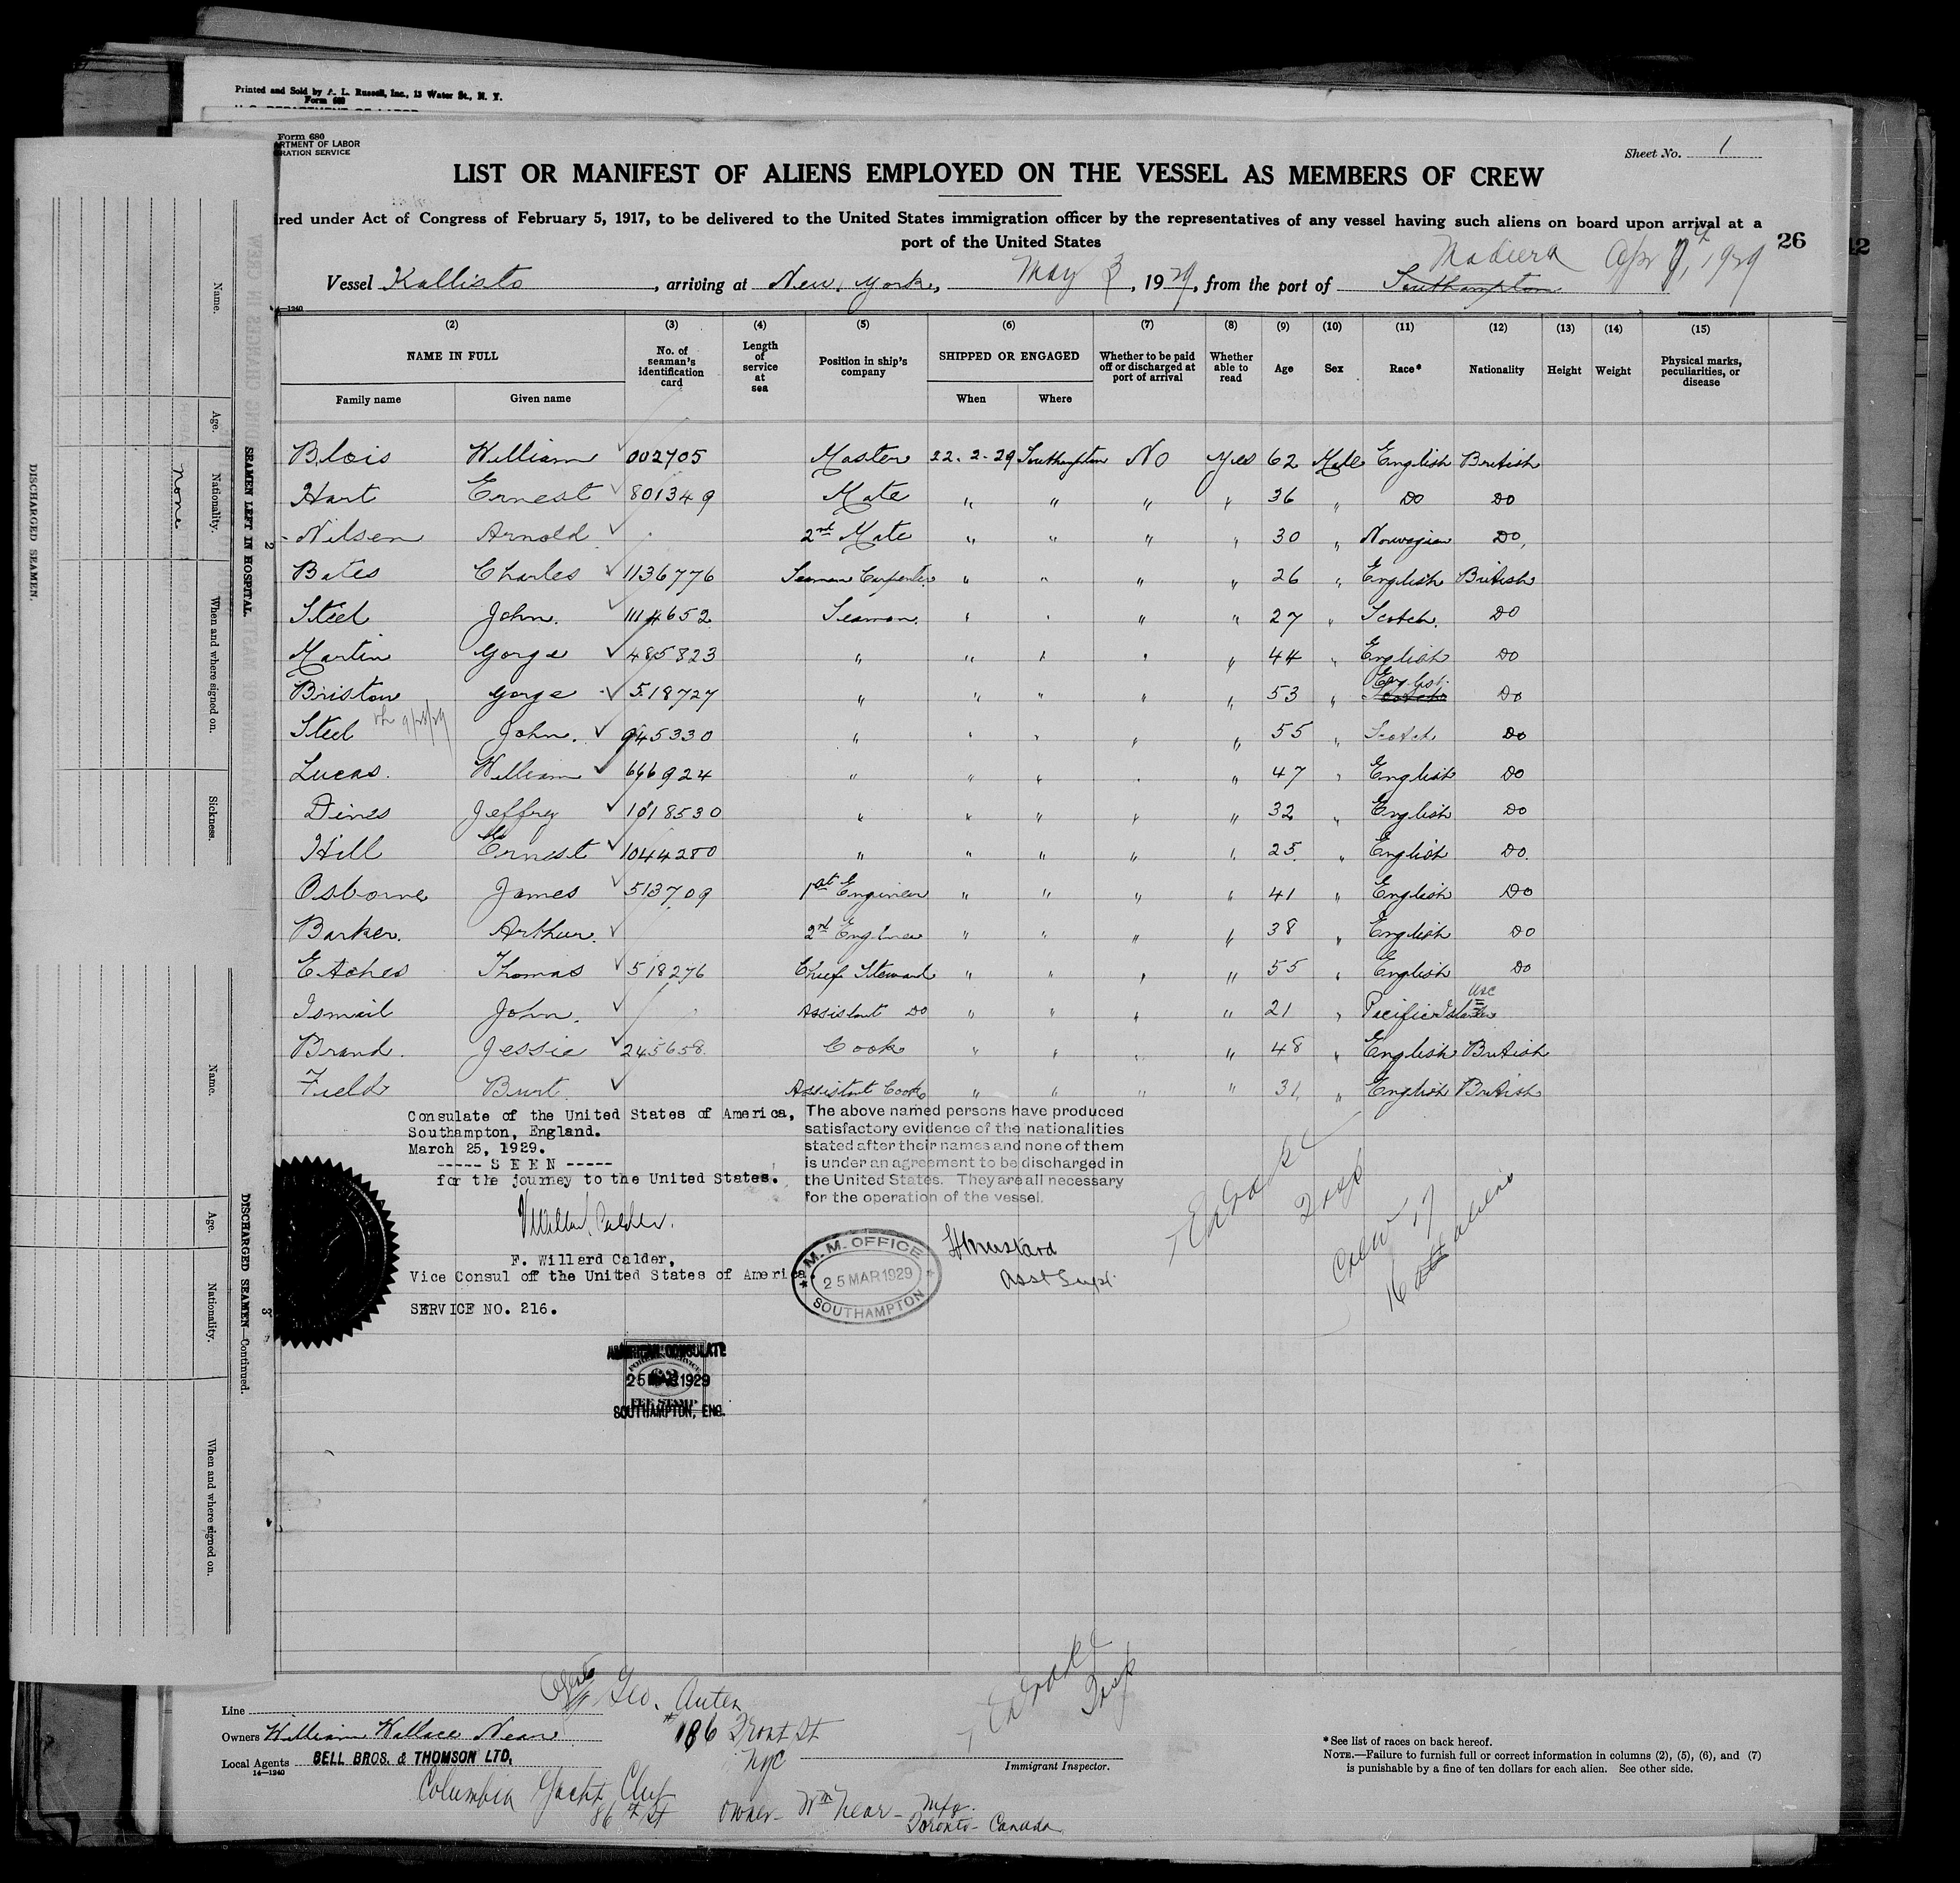 Printed and Sold by A. L. Russell, Inc., 13 Water St., N. Y.
Form 680
U. S. DEPARTMENT OF LABOR
Form 680
ARTMENT OF LABOR
GRATION SERVICE
Sheet No. 1
LIST OR MANIFEST OF ALIENS EMPLOYED ON THE VESSEL AS MEMBERS OF CREW
ired under Act of Congress of February 5, 1917, to be delivered to the United States immigration officer by the representatives of any vessel having such aliens on board upon arrival at a
port of the United States
26
12
Madiera Apr 9, 1929
Vessel Kallisto, arriving at New York, May 3, 1929, from the port of Southampton
14—1240
(2) (3) (4) (5) (6) (7) (8) (9) (10) (11) (12) (13) (14) (15)
NAME IN FULL No. of seaman's identification card Length of service at sea Position in ship's company SHIPPED OR ENGAGED Whether to be paid off or discharged at port of arrival Whether able to read Age Sex Race* Nationality Height Weight Physical marks, peculiarities, or disease
Family name Given name When Where
Blois William 002705 Master 22.2.29 Southampton No Yes 62 Male English British
Hart Ernest 801349 Mate " " " " 36 " Do Do
Nilsen Arnold 2nd Mate " " " " 30 " Norwegian Do
Bates Charles 1136776 Seaman Carpenter " " " " 26 " English British
Steel John. 1114652 Seaman " " " " 27 " Scotch. Do
Martin Gorge 485823 " " " " " 44 " English Do
Briston Gorge 518727 " " " " " 53 " Scotch English Do
Steel John. 945330 " " " " " 55 " Scotch Do
Lucas. William 666924 " " " " " 47 " English Do
Dines Jeffrey 1018530 " " " " " 32 " English Do
Hill Ernest 1044280 " " " " " 25 " English Do.
Osborne James 513709 1st Engineer " " " " 41 " English Do
Barker. Arthur. 2nd Engineer " " " " 38 " English Do
Etches Thomas 518276 Chief Steward " " " " 55 " English Do
Ismail John. Assistant Do " " " " 21 " Pacific Islander USC
Brand. Jessie 245658. Cook " " " " 48 " English British
Field Burt. Assistant Cook " " " " 31 " English British
Consulate of the United States of America,
Southampton, England.
March 25, 1929.
----- S E E N -----
for the journey to the United States.
F. Willard Calder,
Vice Consul of the United States of America.
SERVICE NO. 216.
The above named persons have produced
satisfactory evidence of the nationalities
stated after their names and none of them
is under an agreement to be discharged in
the United States. They are all necessary
for the operation of the vessel.
M. M. OFFICE
25 MAR 1929
SOUTHAMPTON
H Mustard
Asst Supt.
Insp
Crew 17
16 aliens
AMERICAN CONSULATE
25 MAR 1929
FEE STAMP
SOUTHAMPTON, ENG.
Line
Agent Geo. Auten
Owners William Wallace Near
#186 Front St
NYC
Local Agents BELL BROS. & THOMSON LTD,
14—1240
Columbia Yacht Club
86th St
Owner - Wm Near - Mfg.
Toronto - Canada
Insp
Immigrant Inspector.
*See list of races on back hereof.
NOTE.—Failure to furnish full or correct information in columns (2), (5), (6), and (7)
is punishable by a fine of ten dollars for each alien. See other side.
SEAMEN LEFT IN HOSPITAL
Name.
Age.
Nationality.
When and where signed on.
Sickness.
none
DISCHARGED SEAMEN.
DISCHARGED SEAMEN—Continued.
Name.
Age.
Nationality.
When and where signed on.